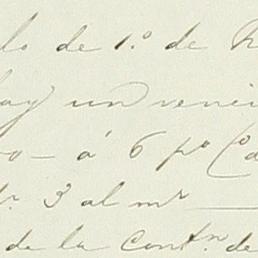 lo de 1.º de
hay un venci
o - á 6 pº (a
r. 3 al mr
de la Contn. de